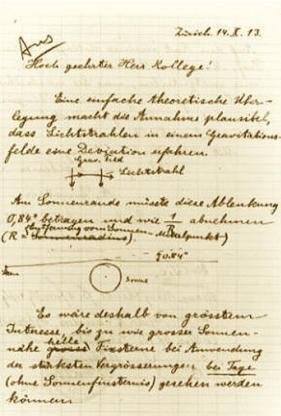 Zürich. 14. X. 13.
Hoch geehrter Herr Kollege!
Eine einfache theoretische Über-
legung macht die Annahme plausibel,
dass Lichtstrahlen in einem Gravitations-
felde eine Deviation erfahren.
Grav. Feld
Lichtstrahl
Am Sonnenrande müsste diese Ablenkung
0,84" betragen und wie 1/R abnehmen
(R = Sonnenradius) Entfernung vom Sonnen-Mittelpunkt)
0.84"
Sonne
Es wäre deshalb von grösstem
Interesse, bis zu wie grosser Sonnen-
nähe helle grosse Fixsterne bei Anwendung
der stärksten Vergrösserungen bei Tage
(ohne Sonnenfinsternis) gesehen werden
können.